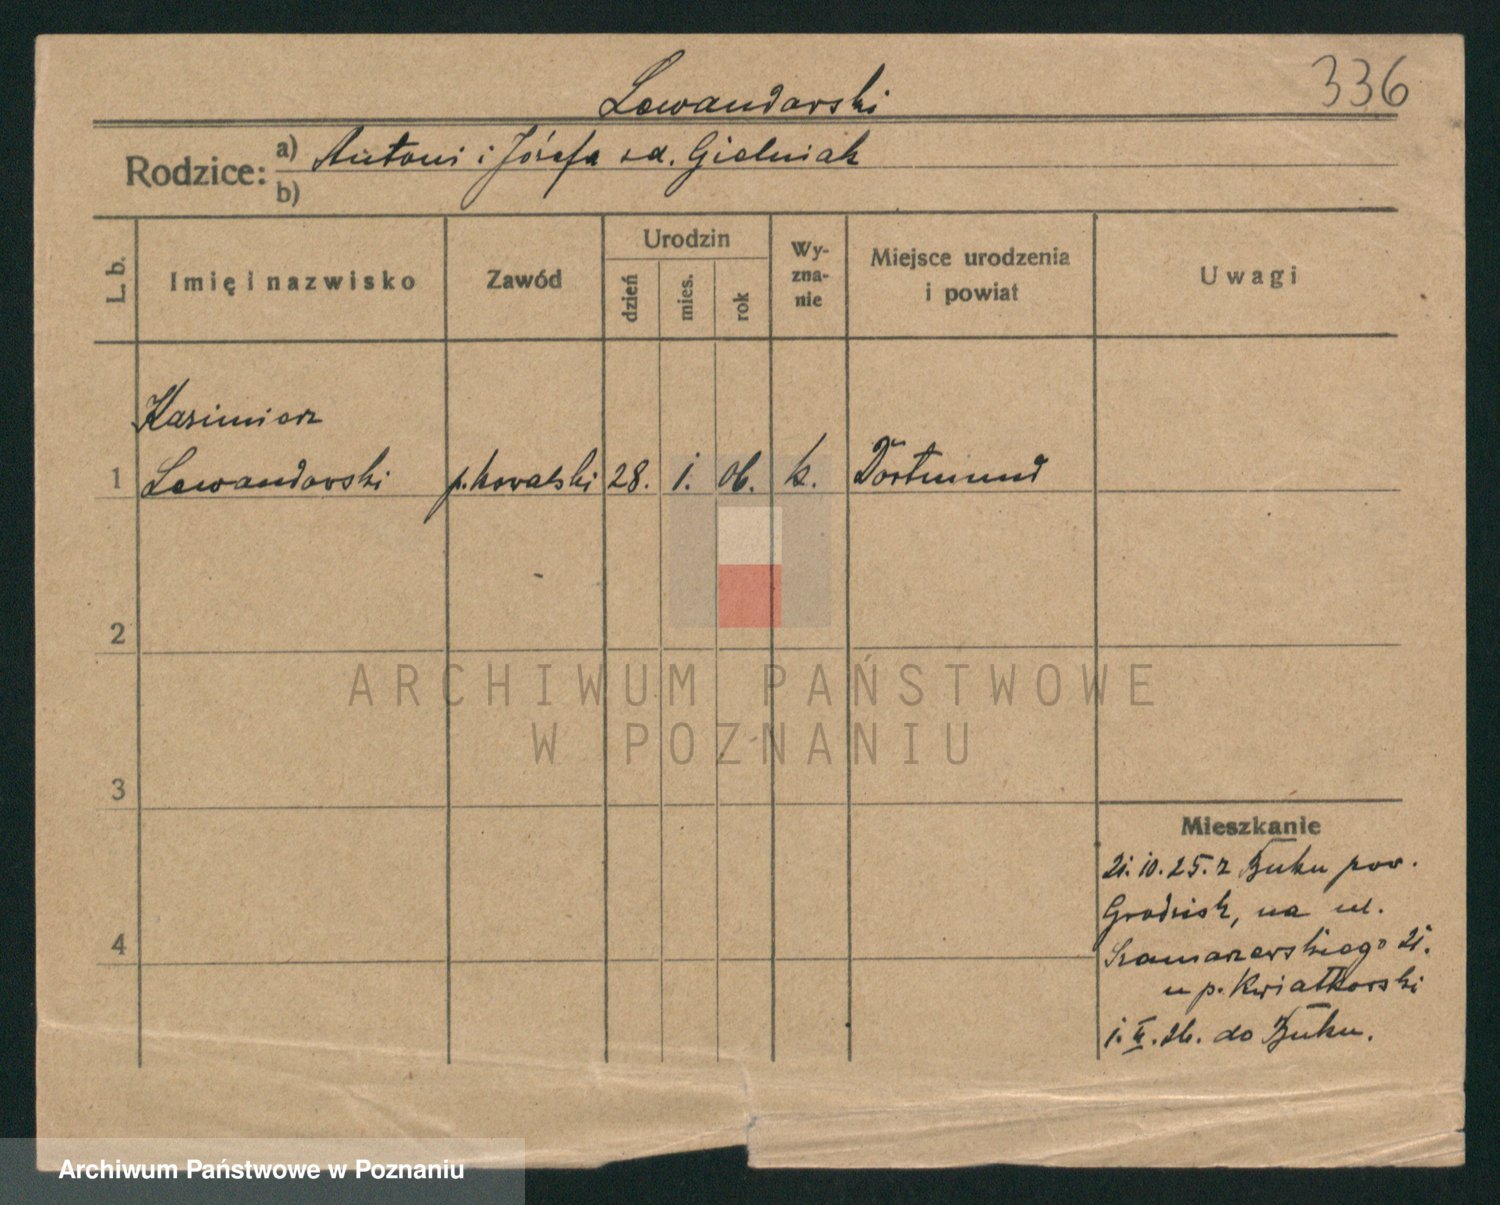 Lewandowski
336
Rodzice:
a) Antoni i Józefa zd. Gielniak
b)
L. b.
Imię i nazwisko
Zawód
Urodzin
dzień
mies.
rok
Wy-
zna-
nie
Miejsce urodzenia
i powiat
Uwagi
Kazimierz
1 Lewandowski p. kowalski 28. 1. 06. k. Dortmund
2
3
4
Mieszkanie
21. 10. 25. z Buku pow.
Grodzisk, na ul.
Szamarzewskiego 21.
u p. Kwiatkowski
do Buku.
ARCHIWUM PAŃSTWOWE
W POZNANIU
Archiwum Państwowe w Poznaniu